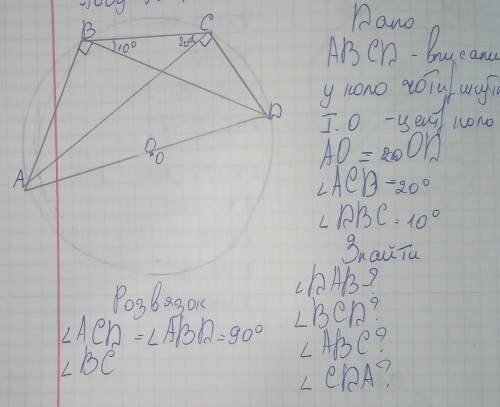 B
C
10°
20°
D
O
A
Дано
ABCD - вписаний
у коло чотирикутник
т.О - центр кола
AO = OD
∠ACB = 20°
∠DBC = 10°
Знайти
∠DAB - ?
∠BCD ?
∠ABC ?
∠CDA ?
Розвязок
∠ACD = ∠ABD = 90°
∠BC